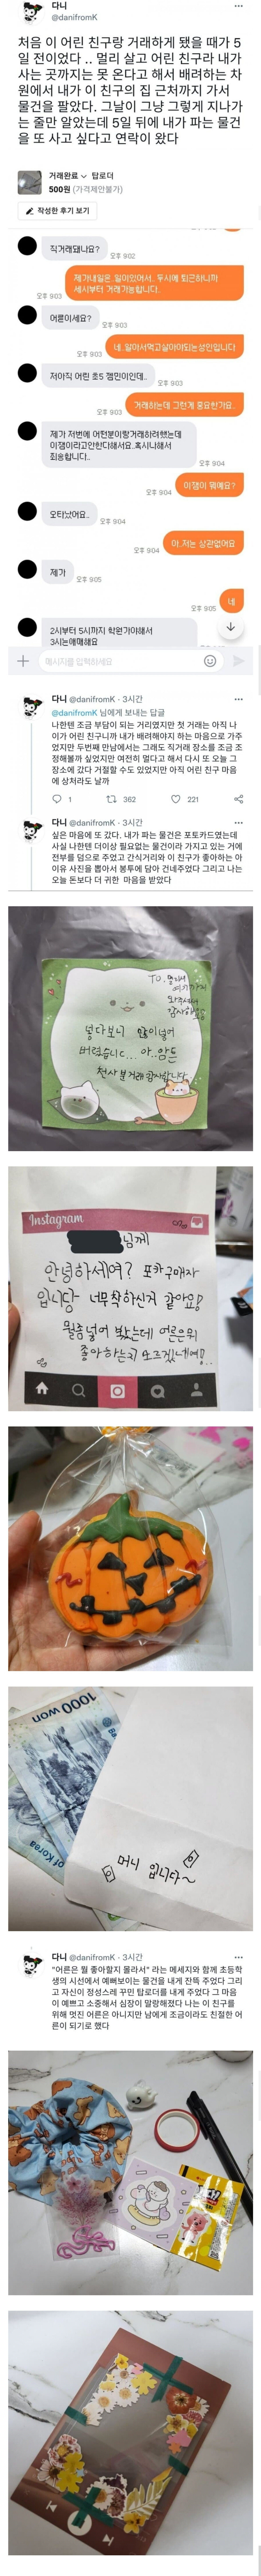 다니
@danifromK
처음 이 어린 친구랑 거래하게 됐을 때가 5
일 전이었다 .. 멀리 살고 어린 친구라 내가
사는 곳까지는 못 온다고 해서 배려하는 차
원에서 내가 이 친구의 집 근처까지 가서
물건을 팔았다. 그날이 그냥 그렇게 지나가
는 줄만 알았는데 5일 뒤에 내가 파는 물건
을 또 사고 싶다고 연락이 왔다
거래완료 탑로더
500원 (가격제안불가)
작성한 후기 보기
직거래돼나요?
오후 9:02
제가내일은 일이있어서. 두시에 퇴근하니까
세시부터 거래가능합니다.
오후 9:03
어른이세요?
오후 9:03
네. 일아서먹고살아야되는성인입니다
오후 9:03
저아직 어린 초5 잼민이인데..
오후 9:03
거래하는데 그런게 중요한가요..
오후 9:03
제가 저번에 어떤분이랑거래하려했는데
이잼이라고안한다해서요..혹시나해서
죄송합니다..
오후 9:04
이잼이 뭐예요?
오후 9:04
오타났어요..
오후 9:04
아. 저는 상관없어요
오후 9:04
제가
오후 9:05
네
오후 9:05
2시부터 5시까지 학원가야해서
3시는애매해요
메시지를 입력하세요
다니 @danifromK · 3시간
@danifromK 님에게 보내는 답글
나한텐 조금 부담이 되는 거리였지만 첫 거래는 아직 나
이가 어린 친구니까 내가 배려해야지 하는 마음으로 가주
었지만 두번째 만남에서는 그래도 직거래 장소를 조금 조
정해볼까 싶었지만 여전히 멀다고 해서 다시 또 오늘 그
장소에 갔다 거절할 수도 있었지만 아직 어린 친구 마음
에 상처라도 날까
1 362 221
다니 @danifromK · 3시간
싶은 마음에 또 갔다. 내가 파는 물건은 포토카드였는데
사실 나한텐 더이상 필요없는 물건이라 가지고 있는 거에
전부를 덤으로 주었고 간식거리와 이 친구가 좋아하는 아
이유 사진을 뽑아서 봉투에 담아 건네주었다 그리고 나는
오늘 돈보다 더 귀한 마음을 받았다
TO. 멀리서
여기까지
와주셔서
감사해요
넣다보니 많이넣어
버렸습니다... 아..암튼
천사분거래 감사합니다
Instagram
님께
안녕하세여? 포카구매자
입니당~ 너무착하신거 같아요!
뭘좀넣어 봤는데 어른은뭐
좋아하는지 모르겠네여!..
1000 won
of Korea
머니 입니다~
다니 @danifromK · 3시간
"어른은 뭘 좋아할지 몰라서" 라는 메세지와 함께 초등학
생의 시선에서 예뻐보이는 물건을 내게 잔뜩 주었다 그리
고 자신이 정성스레 꾸민 탑로더를 내게 주었다 그 마음
이 예쁘고 소중해서 심장이 말랑해졌다 나는 이 친구를
위해 멋진 어른은 아니지만 남에게 조금이라도 친절한 어
른이 되기로 했다